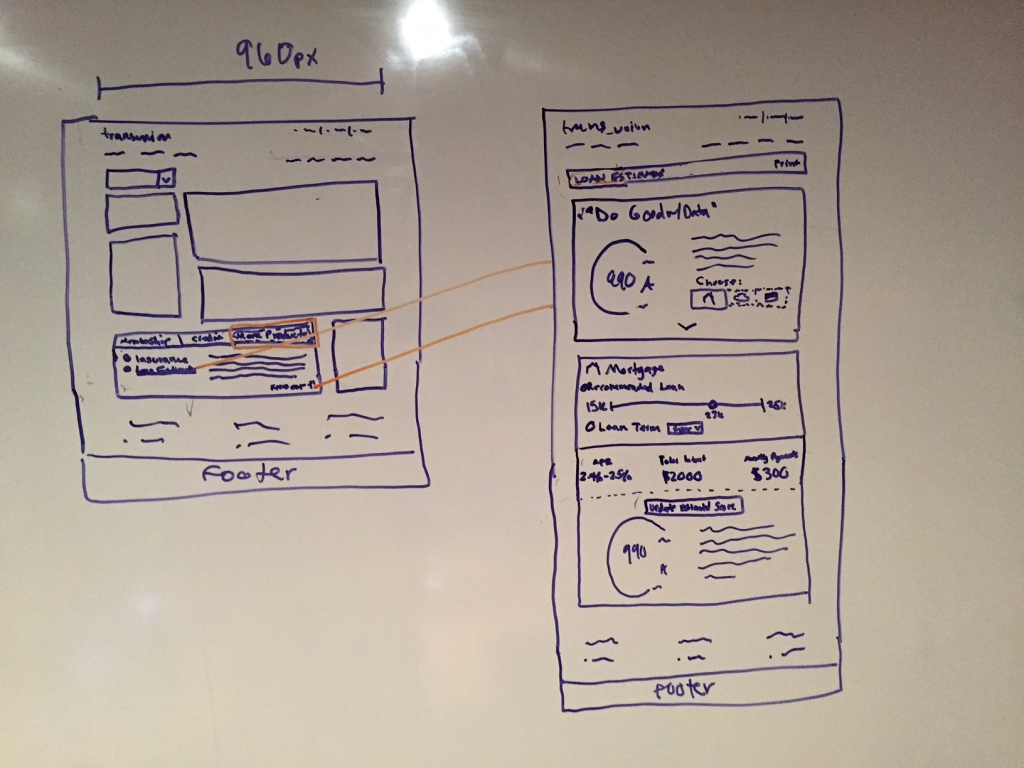 960px
transunion
Membership
More Products
Insurance
Loan Estimate
Footer
trans_union
LOAN ESTIMATE
Print
"Do Good w/Data"
990 A
Choose:
Mortgage
Recommended Loan
15k
25k
Loan Term
APR
2.4%-25%
$2000
Monthly Payments
$300
Update Estimated Score
990
A
Footer